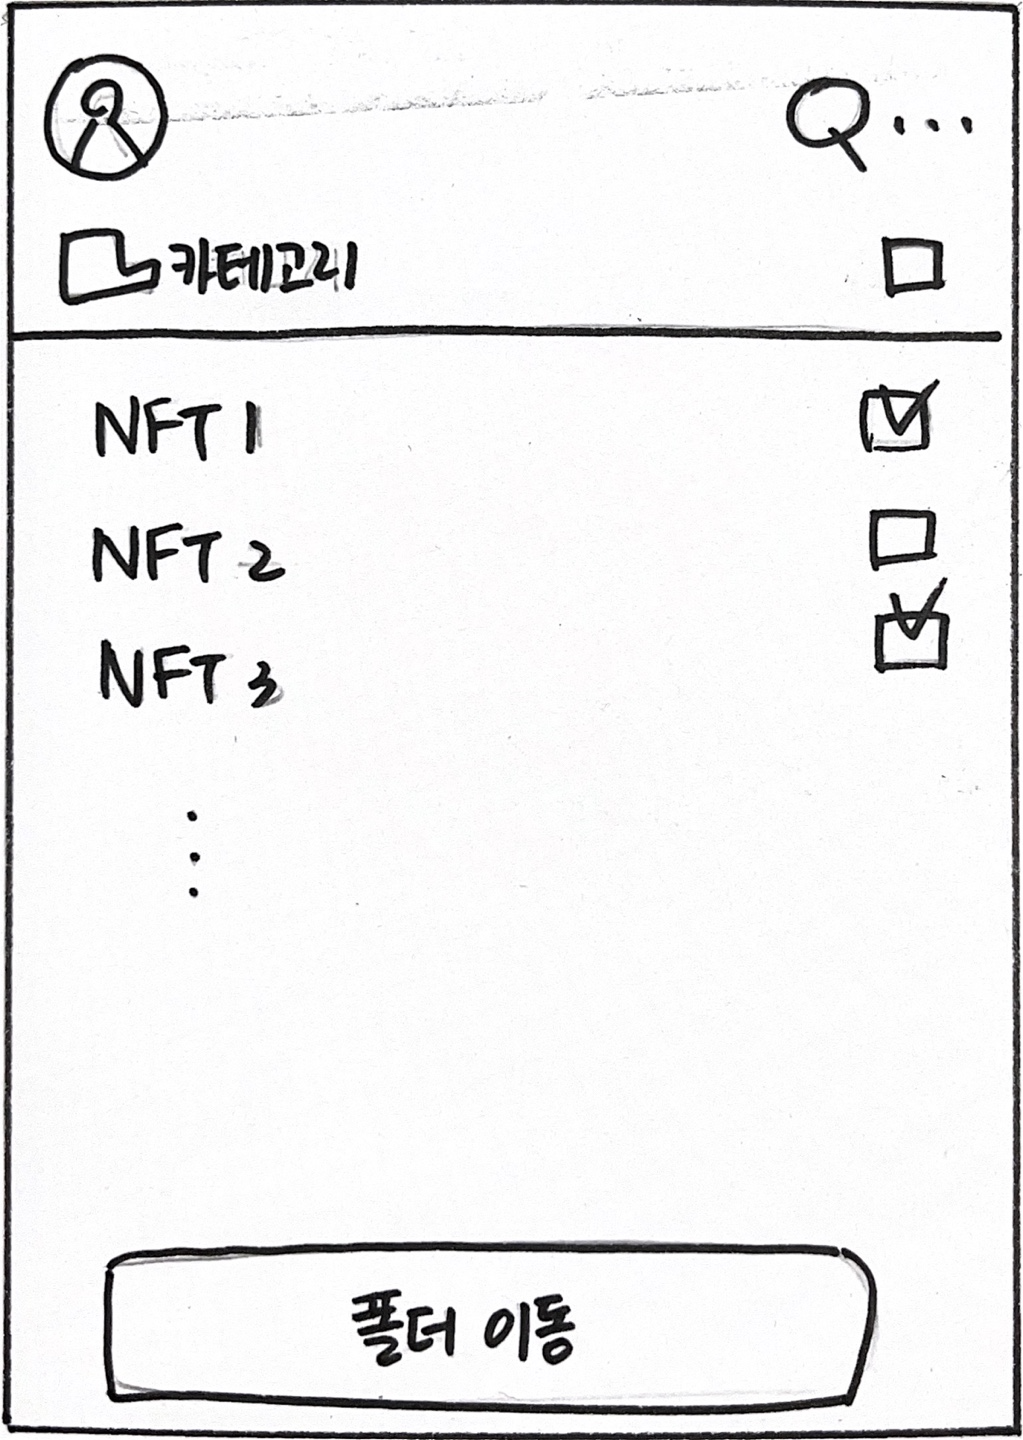 카테고리
NFT 1
NFT 2
NFT 3
폴더 이동